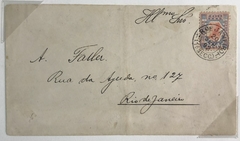 Illmo Snr
A. Faller.
Rua da Ajuda no 127
Rio de Janeiro